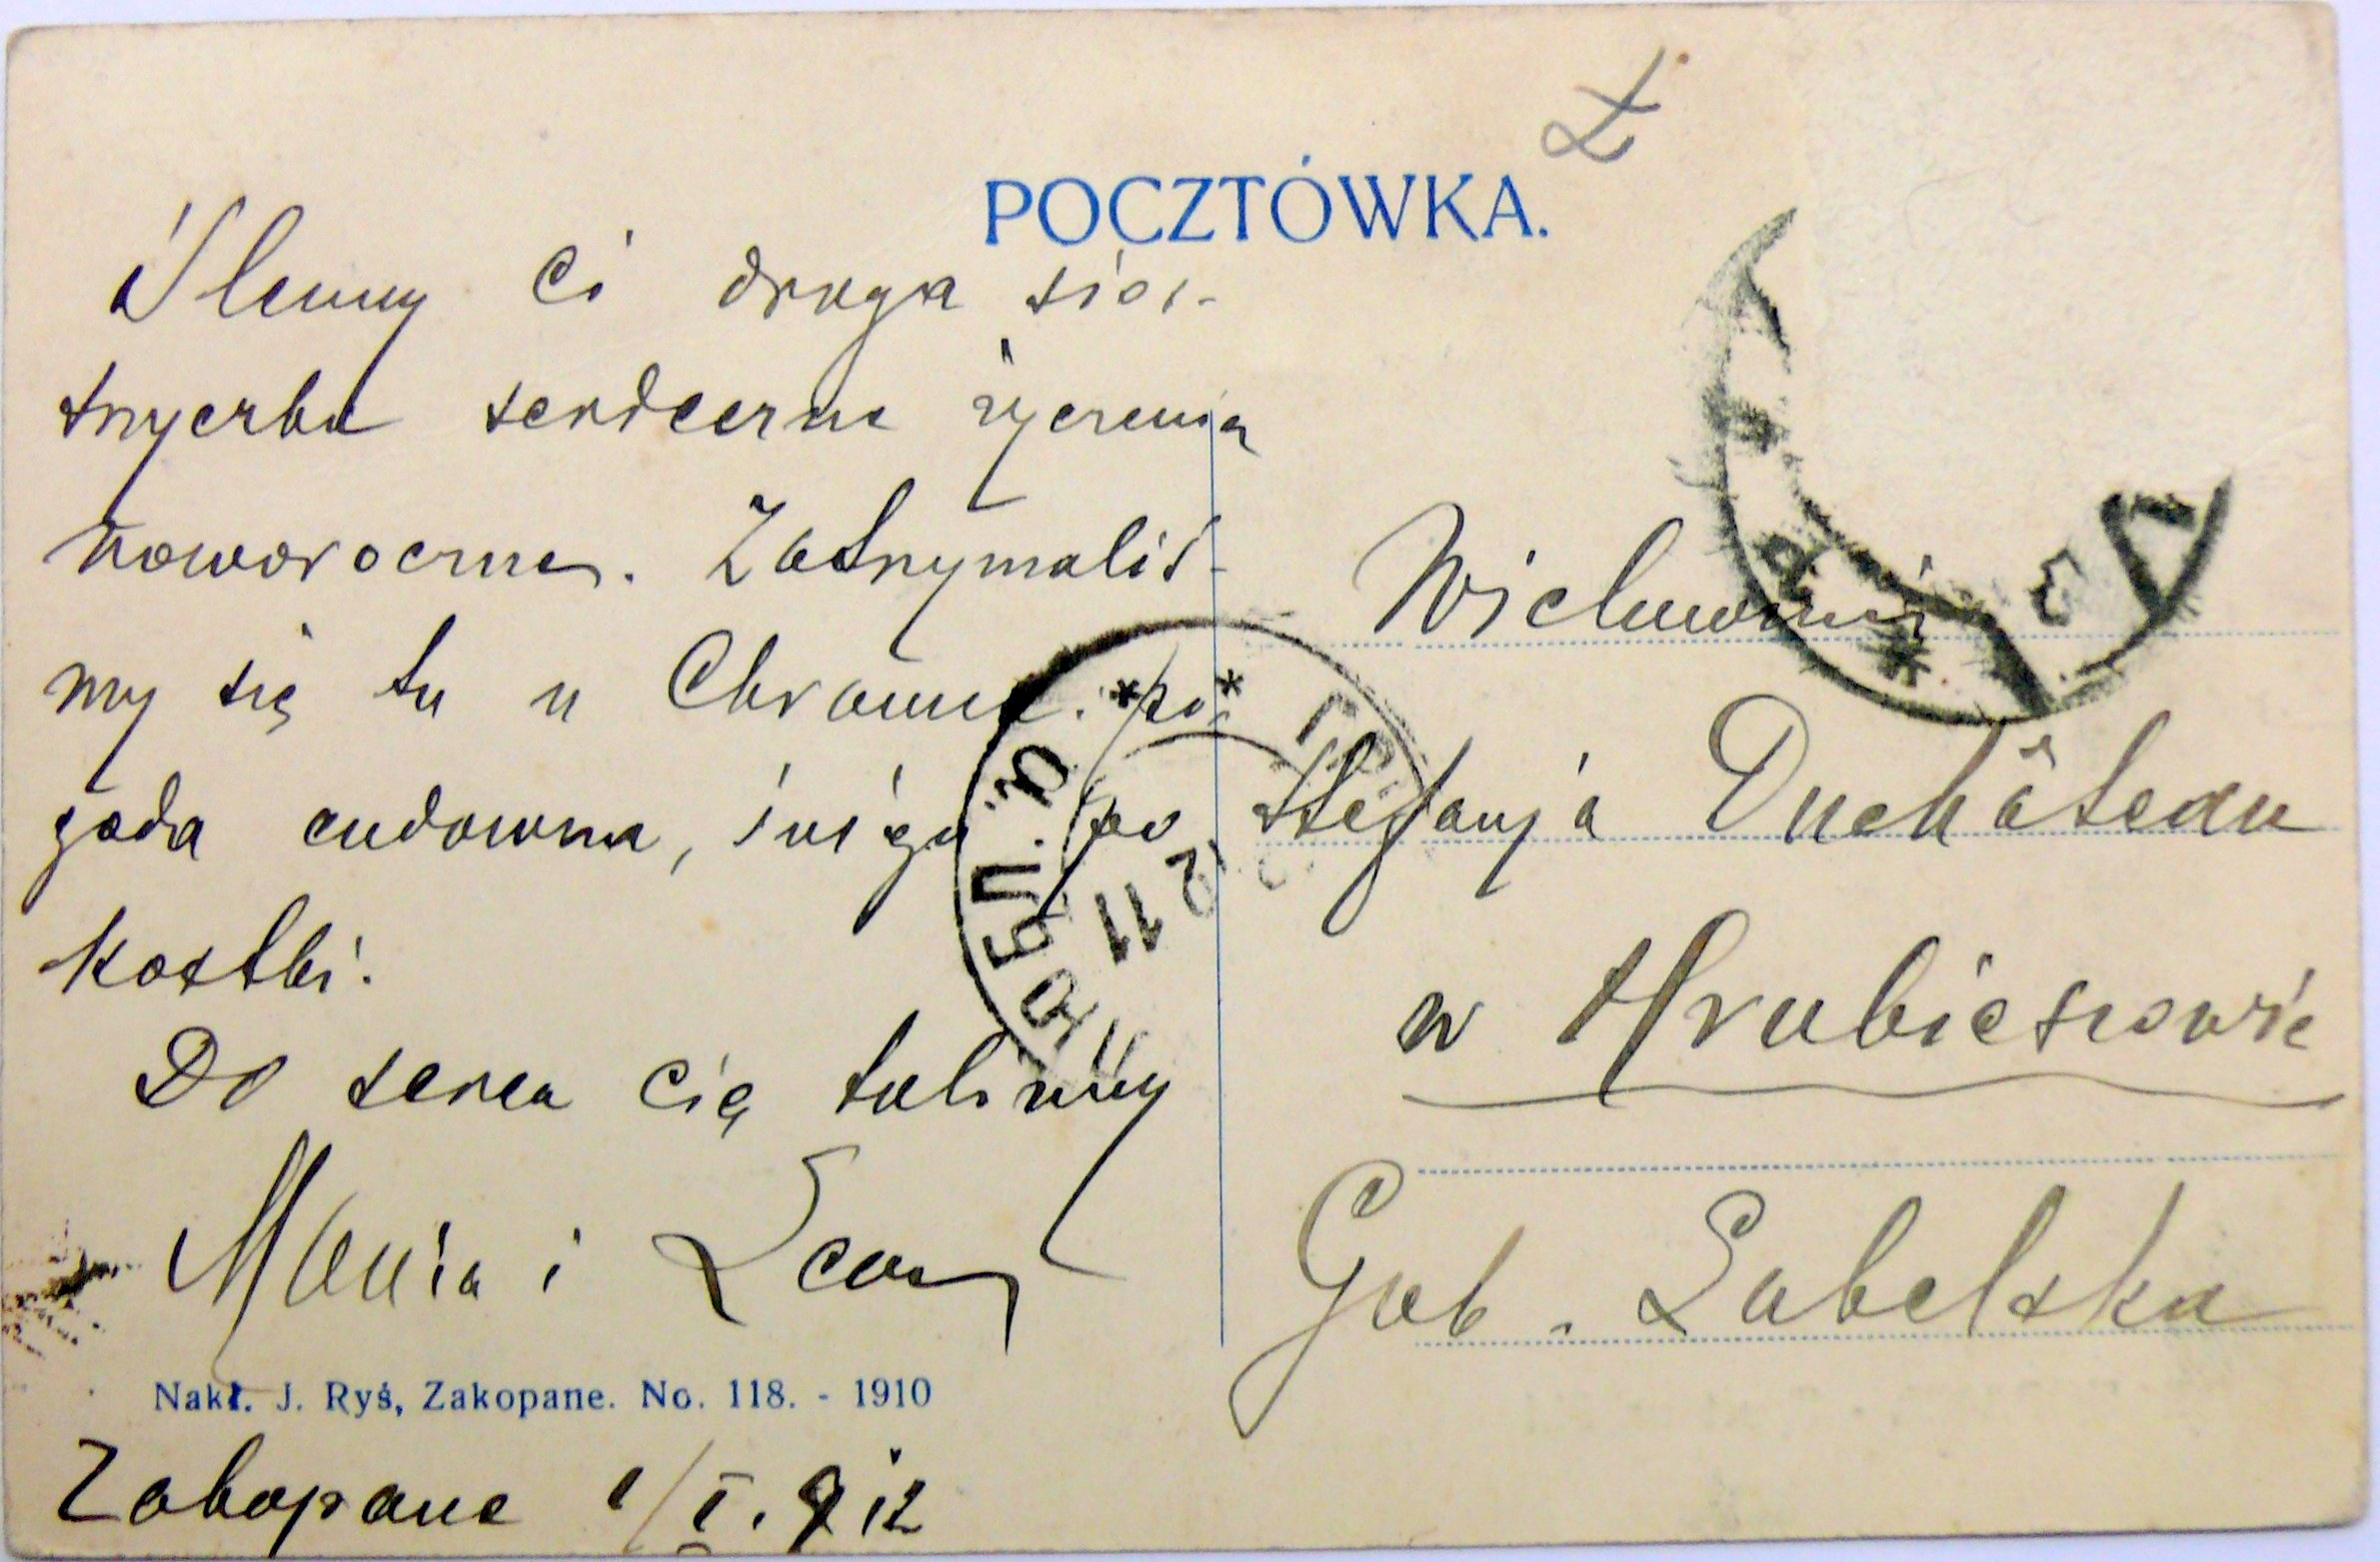 Ł
POCZTÓWKA.
Ślemy Ci droga sios-
trzyczko serdeczne życzenia
noworoczne. Zatrzymaliś-
my się tu u Chramca. po-
goda cudowna, śniegu po
kostki.
Do serca Cię tulimy
Mania i Leon
Nakł. J. Ryś, Zakopane. No. 118. - 1910
Zakopane 1/I. 912
Wielmożna
Stefanja Duchâteau
w Hrubieszowie
Gub. Lubelska
11